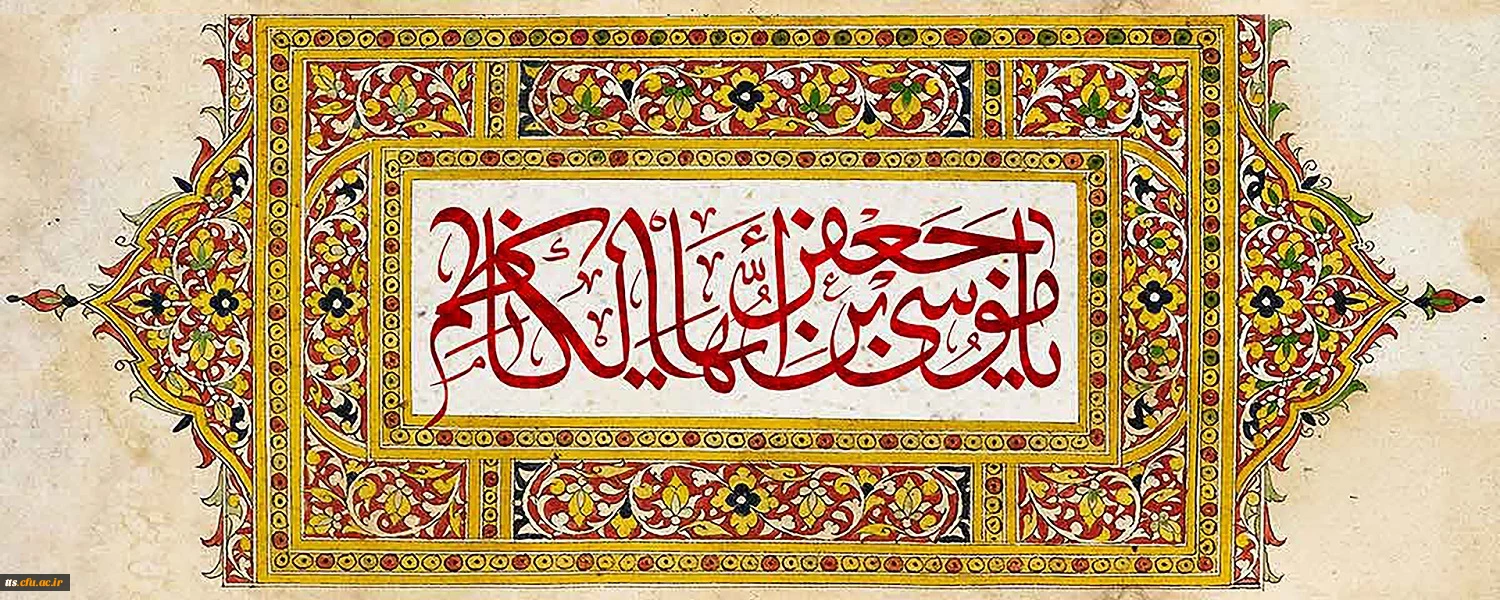 یا موسی بن جعفر ایها الکاظم
us.cfu.ac.ir